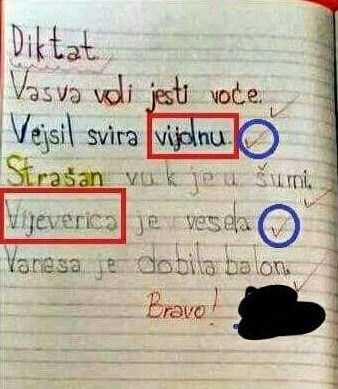 Diktat
Vasva voli jesti voće.
Vejsil svira vijolnu.
Strašan vuk je u šumi.
Vijeverica je vesela.
Vanesa je dobila balon.
Bravo!